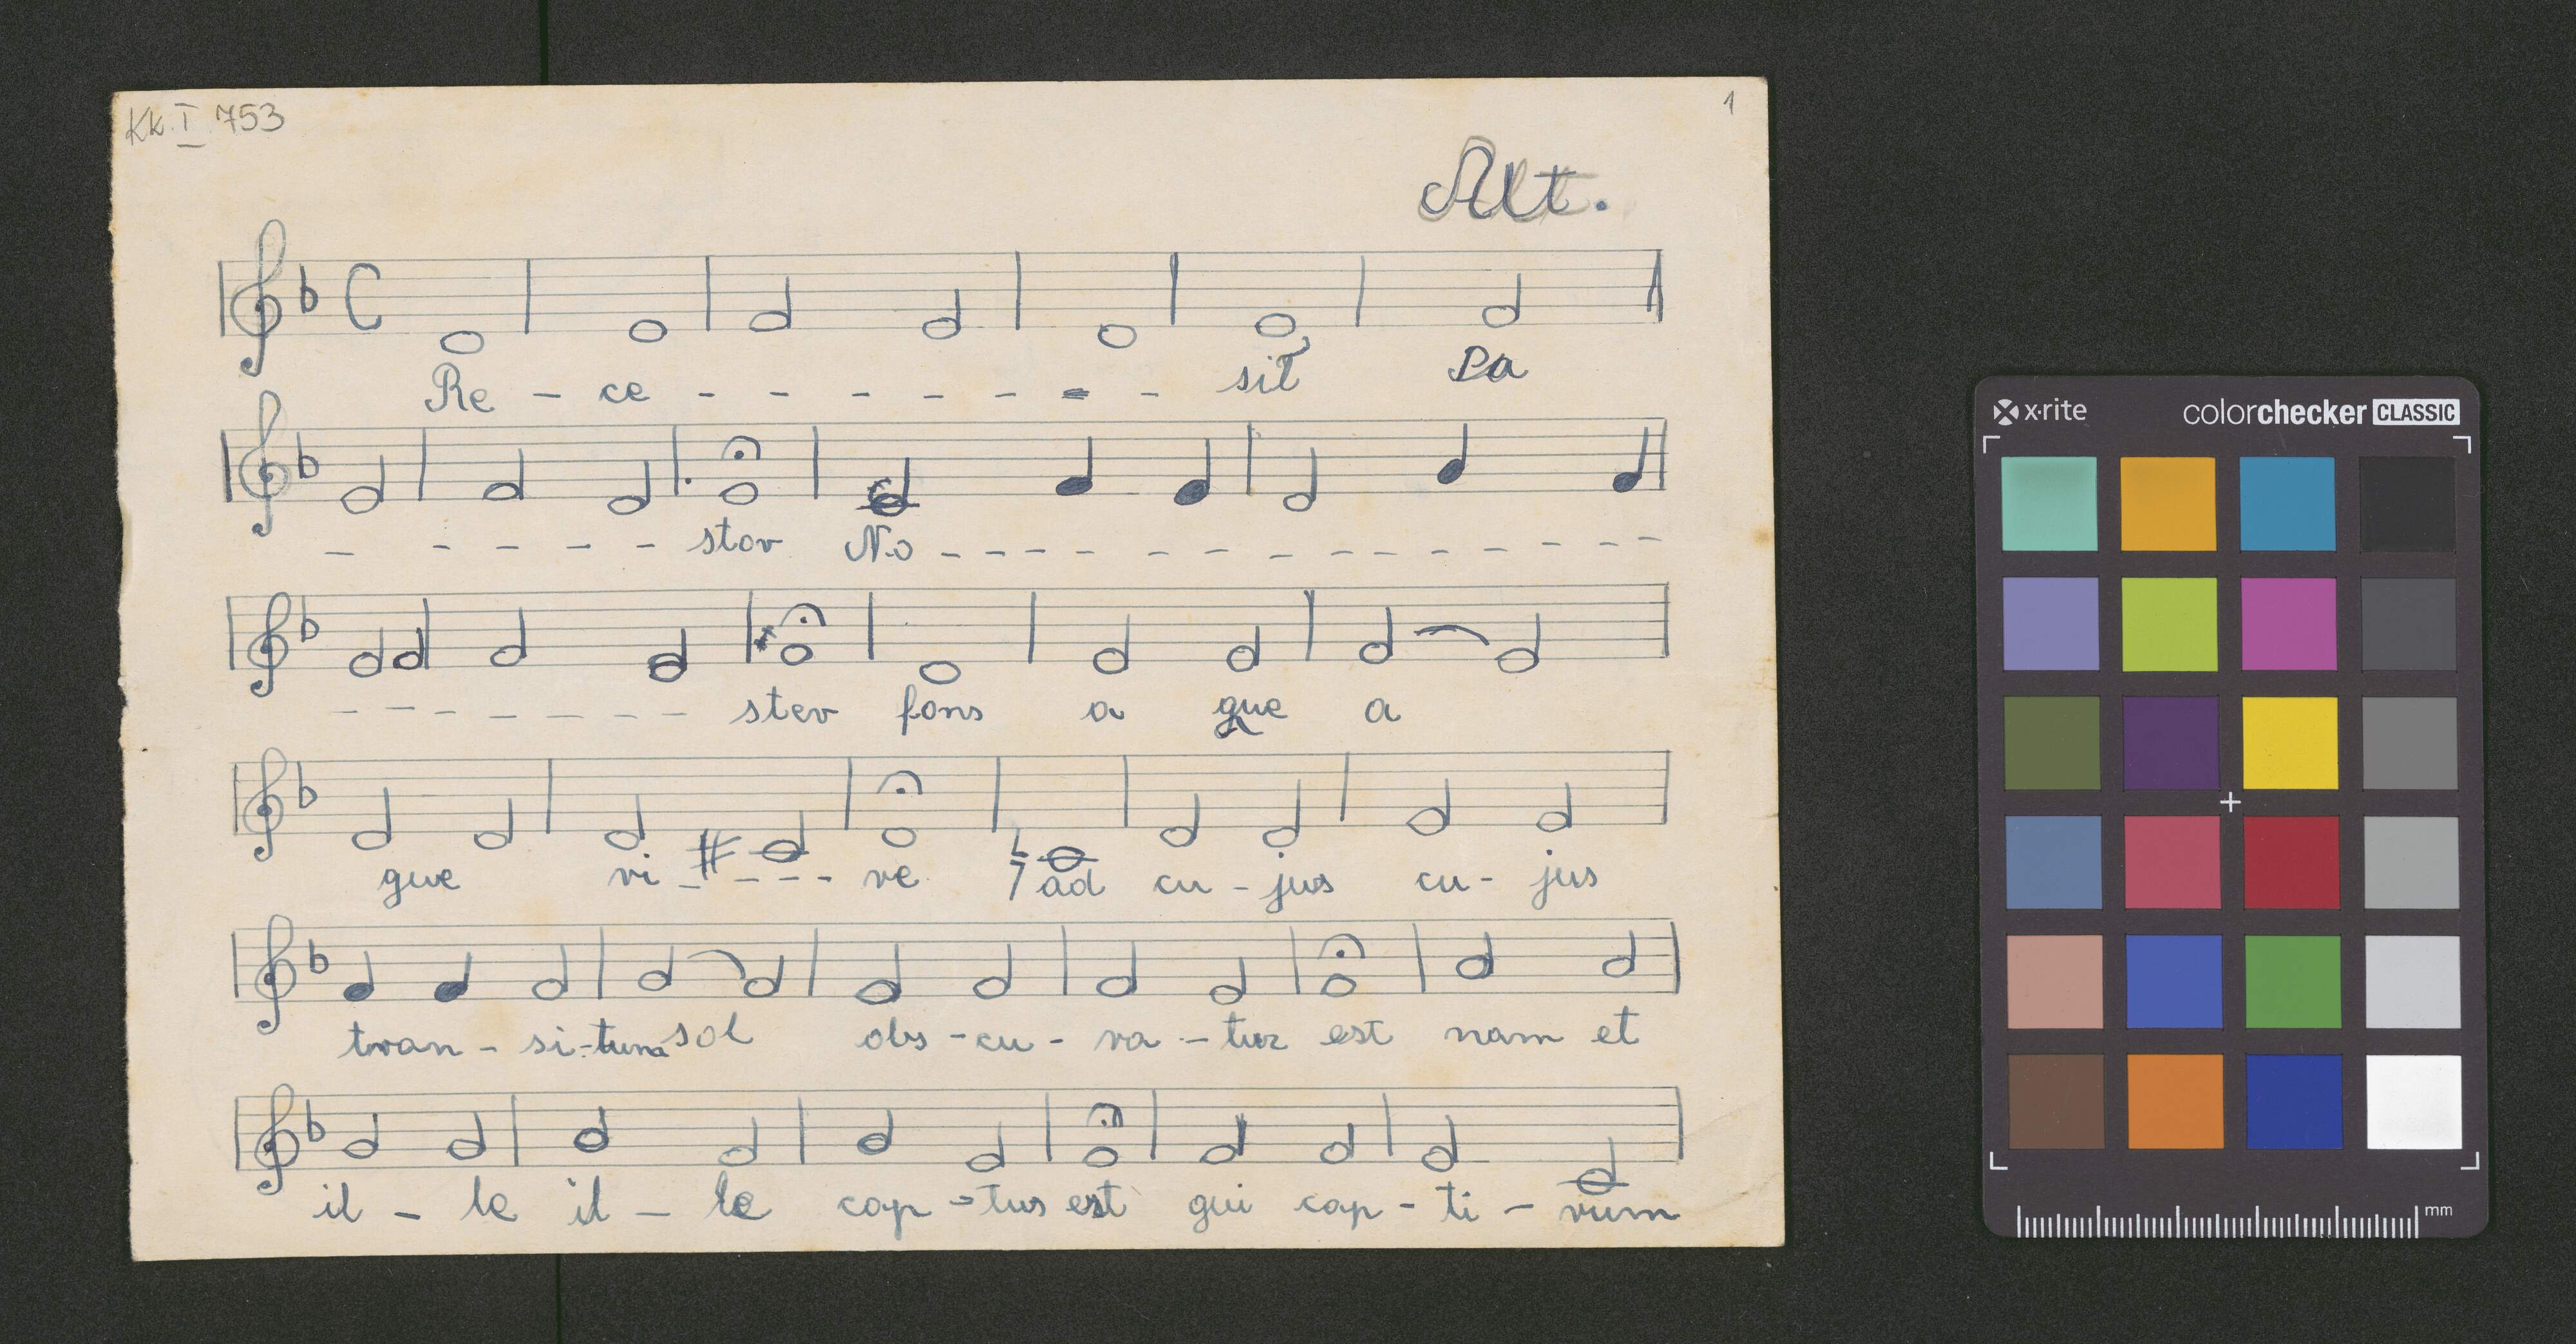 Kk. I 753
1
Alt.
Re - ce - - - - - - - sit Pa
- - - - - stor No - - - - - - - - - - - - -
- - - - - - - - ster fons a que a
que vi - - - - ve ad cu - jus cu - jus
tran - si - tum sol obs - cu - ra - tur est nam et
il - le il - le cap - tus est qui cap - ti - vum
x·rite colorchecker CLASSIC
mm